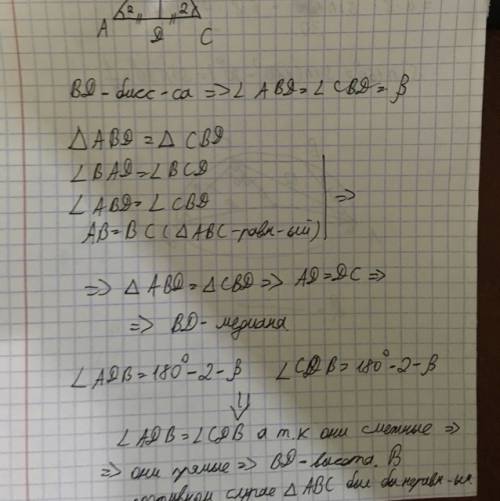 2 2
A D C
BD - бисс-са => ∠ ABD = ∠ CBD = β
△ ABD = △ CBD
∠ BAD = ∠ BCD
∠ ABD = ∠ CBD =>
AB = BC (△ ABC - равн-ый)
=> △ ABD = △ CBD => AD = DC =>
=> BD - медиана
∠ ADB = 180° - 2 - β ∠ CDB = 180° - 2 - β
⇓
∠ ADB = ∠ CDB а т.к они смежные =>
=> они прямые => BD - высота. В
случае △ ABC был бы неравн-ый